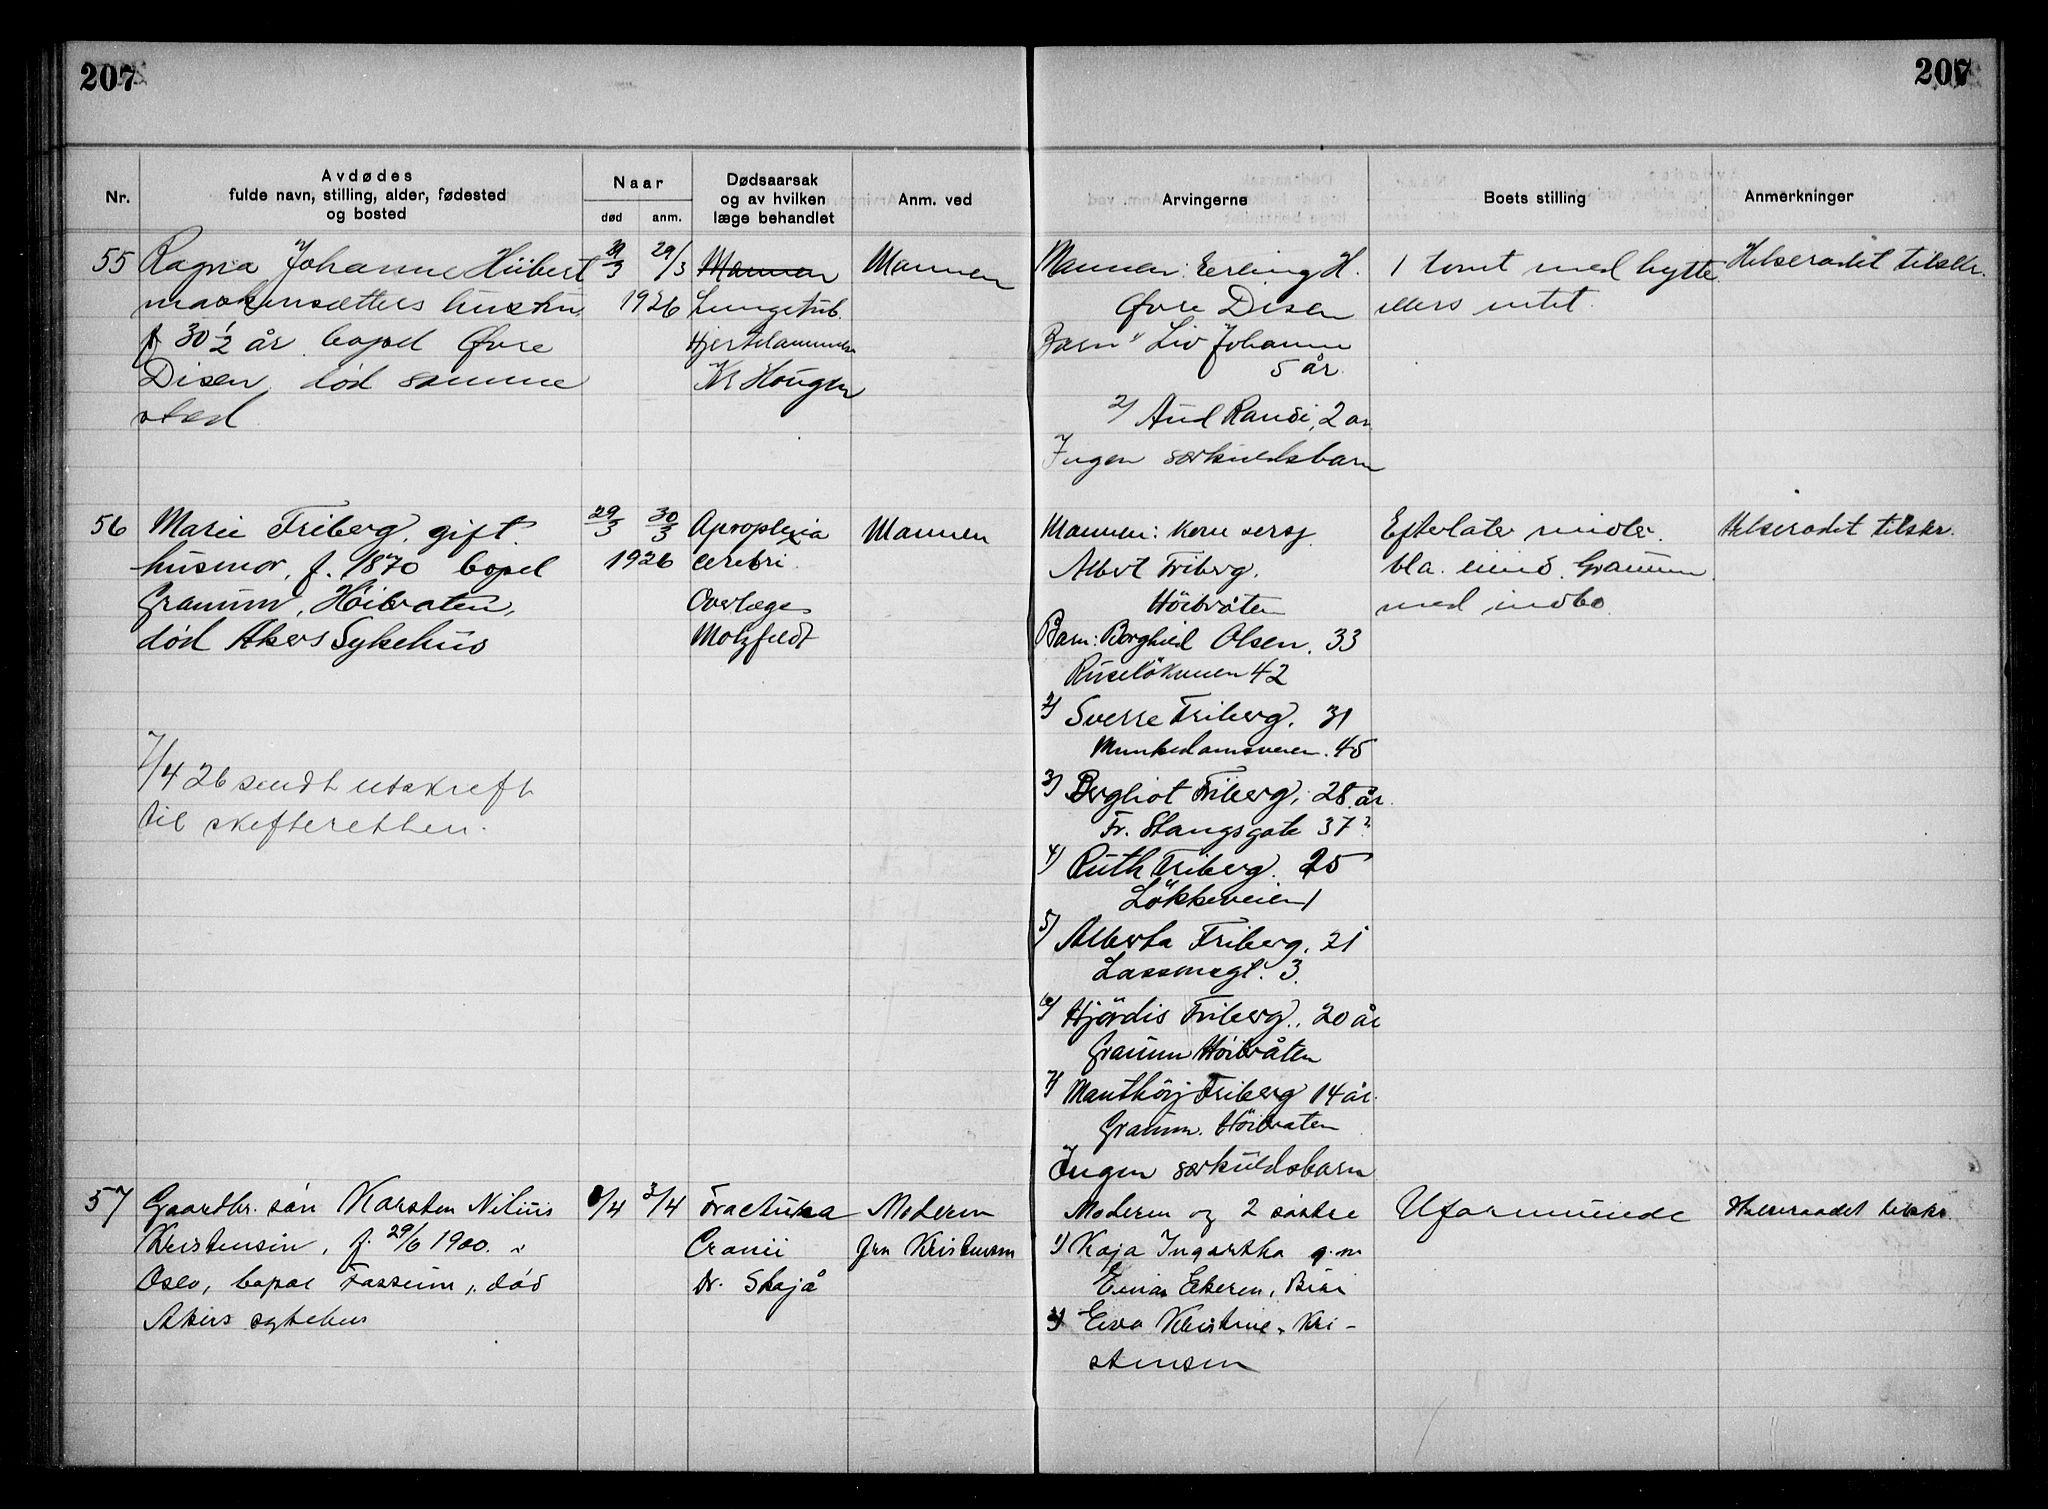 207
207
Nr.
Avdødes
fulde navn, stilling, alder, fødested
og bosted
Naar
død
anm.
Dødsaarsak
og av hvilken
læge behandlet
Anm. ved
Arvingerne
Boets stilling
Anmerkninger
55
Ragna Johanne Hübert
maskinsætters hustru,
30 1/2 år bopel Øvre
Disen, død samme
sted
29/3
1926
Mannen
Lungetub.
Hjertelammelse
Kr Hougen
Mannen
Mannen: Erling H.
Øvre Disen
Barn 1) Liv Johanne
5 år
2) Aud Randi, 2 år
Ingen særkuldsbarn
1 tomt med hytte
ellers intet.
Helserådet tilskr.
56
Marie Friberg, gift.
husmor, f. 1870 bopel
Granum, Høibråten,
død Akers Sykehus
29/3
30/3
1926
Aproplexia
cerebri.
Overlæge
Motzfeldt
Mannen
Mannen: Korn sersj
Albert Friberg.
Höibråten
Barn: Borghild Olsen. 33
Ruselökveien 42
2) Sverre Friberg. 31
Munkedamsveien. 45
3) Bergliot Friberg, 28 år.
Fr. Stangsgate 37
4) Ruth Friberg. 25
Lökkeveien 1
5) Alberta Friberg. 21
Lassonsgt. 3.
6) Hjördis Friberg., 20 år
Granum Höibråten
7) Friberg 14 år.
Granum. Höibråten
Ingen særkuldsbarn
Efterlater midler
bla. eiend. Granum
med indbo.
Helserådet tilskr.
7/4 26 sendt utskrift
til skifteretten.
57
Gaardbr. sön Karsten Nilius
Kristensen, f. 29/6 1900.
Oslo, bopæl Fossum, död
Akers sykehus
/4
3/4
Fractura
Cranii
Dr. Skajå
Moderen
fru Kristensen
Moderen og 2 söstre
1) Kaja Ingartha g.m.
Einar Ekeren, Biri
2) Eva Kristine Kri-
stensen
Uformuende
Helseraadet tilskr.